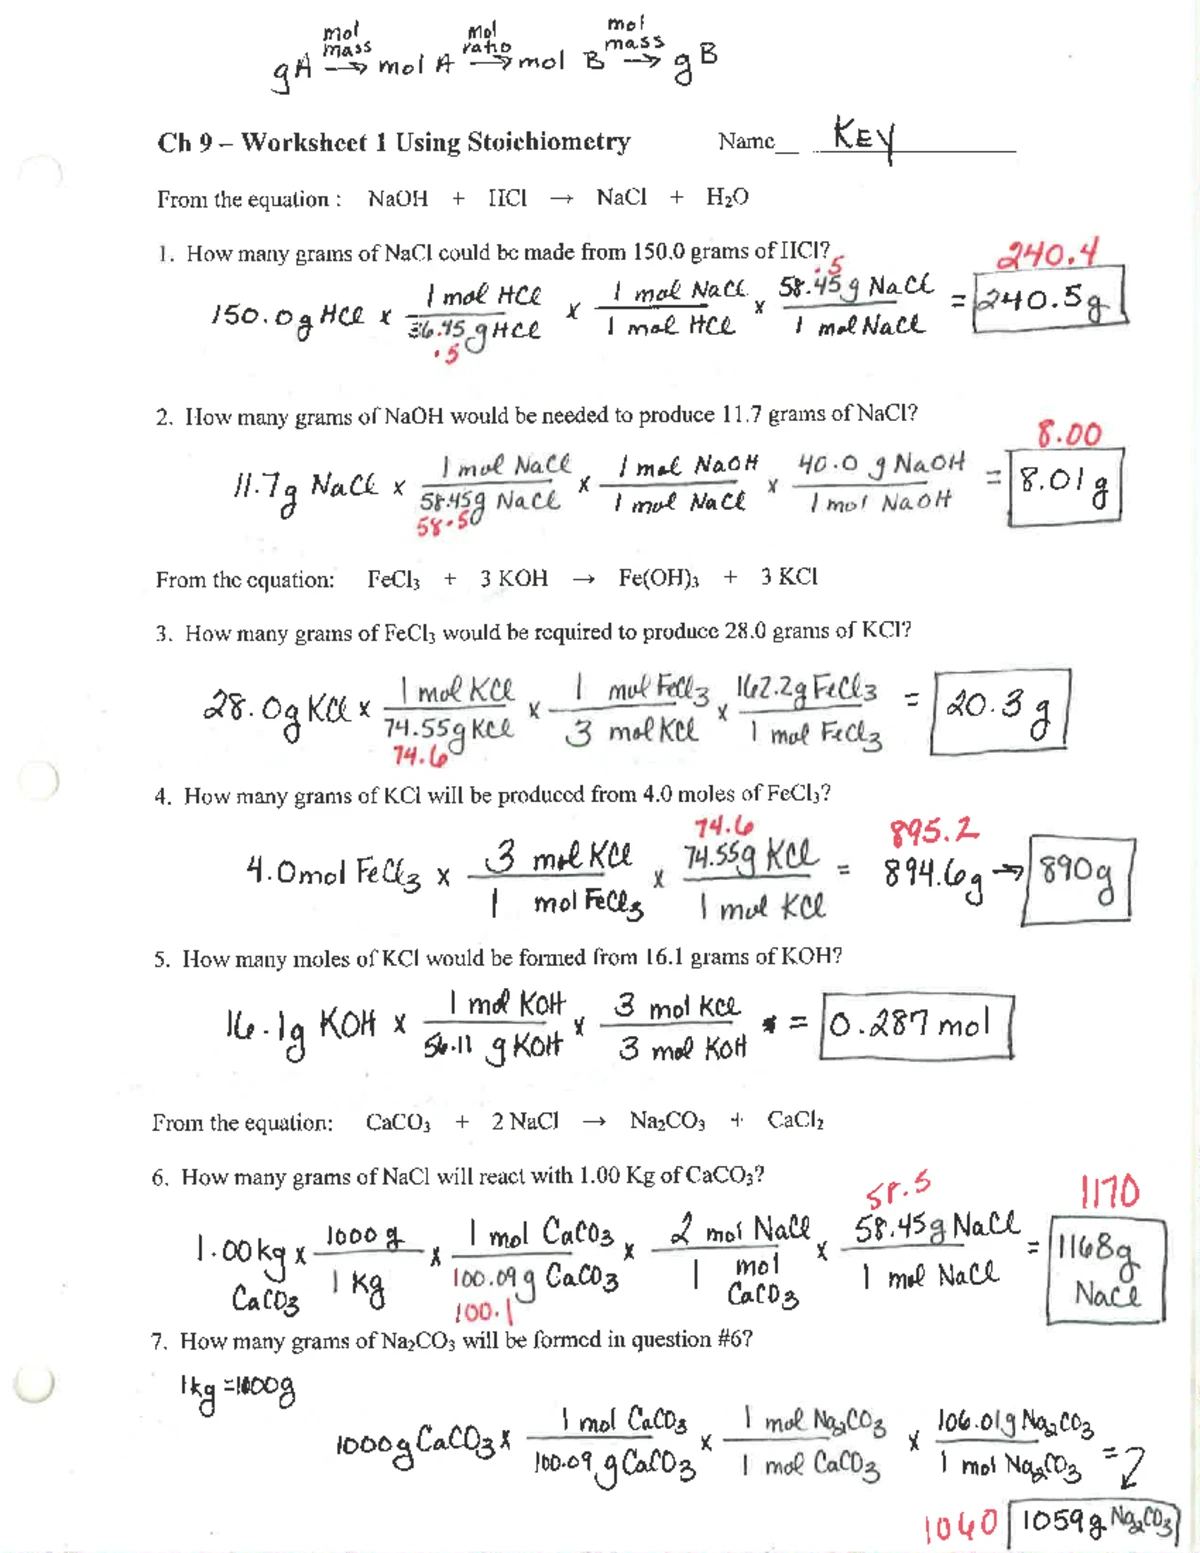 mol mol mol
mass ratio mass
gA → mol A → mol B → g B
Ch 9 – Worksheet 1 Using Stoichiometry Name__ KEY
From the equation : NaOH + HCl → NaCl + H₂O
1. How many grams of NaCl could be made from 150.0 grams of HCl? 240.4
.5
150.0g HCl x 1 mol HCl / 36.45 g HCl x 1 mol NaCl / 1 mol HCl x 58.45g NaCl / 1 mol NaCl = 240.5g
.5
2. How many grams of NaOH would be needed to produce 11.7 grams of NaCl?
8.00
11.7g NaCl x 1 mol NaCl / 58.45g NaCl x 1 mol NaOH / 1 mol NaCl x 40.0 g NaOH / 1 mol NaOH = 8.01 g
58.50
From the equation: FeCl₃ + 3 KOH → Fe(OH)₃ + 3 KCl
3. How many grams of FeCl₃ would be required to produce 28.0 grams of KCl?
28.0g KCl x 1 mol KCl / 74.55g KCl x 1 mol FeCl₃ / 3 mol KCl x 162.2g FeCl₃ / 1 mol FeCl₃ = 20.3 g
74.6
4. How many grams of KCl will be produced from 4.0 moles of FeCl₃?
74.6 895.2
4.0mol FeCl₃ x 3 mol KCl / 1 mol FeCl₃ x 74.55g KCl / 1 mol KCl = 894.6g → 890g
5. How many moles of KCl would be formed from 16.1 grams of KOH?
16.1g KOH x 1 mol KOH / 56.11 g KOH x 3 mol KCl / 3 mol KOH = 0.287 mol
From the equation: CaCO₃ + 2 NaCl → Na₂CO₃ + CaCl₂
6. How many grams of NaCl will react with 1.00 Kg of CaCO₃?
58.5 1170
1.00kg CaCO₃ x 1000 g / 1 kg x 1 mol CaCO₃ / 100.09g CaCO₃ x 2 mol NaCl / 1 mol CaCO₃ x 58.45g NaCl / 1 mol NaCl = 1168g NaCl
100.1
7. How many grams of Na₂CO₃ will be formed in question #6?
1kg =1000g
1000g CaCO₃ x 1 mol CaCO₃ / 100.09 g CaCO₃ x 1 mol Na₂CO₃ / 1 mol CaCO₃ x 106.01g Na₂CO₃ / 1 mol Na₂CO₃ =
1060 1059g Na₂CO₃